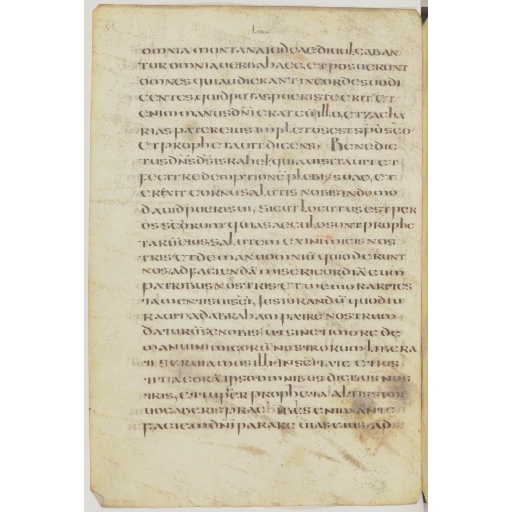 omnia montana iudaeae diuulgaban
tur omnia uerba haec, et posuerunt
omnes qui audierant in corde suo di
centes, quid putas puer iste erit et
enim manus dnī erat cū illo, et zacha
rias pater eius impletus est spū scō
et prophetauit dicens, Benedic
tus dns ds israhel quia uisitauit et
fecit redemptionē plebis suae, et
erexit cornu salutis nobis in domo
dauid pueri sui, sicut locutus est per
os scōrum qui a saeculo sunt prophe
tarū eius salutem ex inimicis nos
tris et de manu omniū qui oderunt
nos ad faciendā misericordiā cum
patribus nostris et memorari tes
tamenti sui scī, Iusiurandū quod iu
rauit ad abraham patrē nostrum
daturū se nobis ut sine timore de
manu inimicorū nostrorum libera
ti seruiamus illi In scītate et ius
titia corā ipso omnibus diebus nos
tris, et tu puer propheta altissimi
uocaberis praeibis enim ante
faciem dnī parare uias eius ad